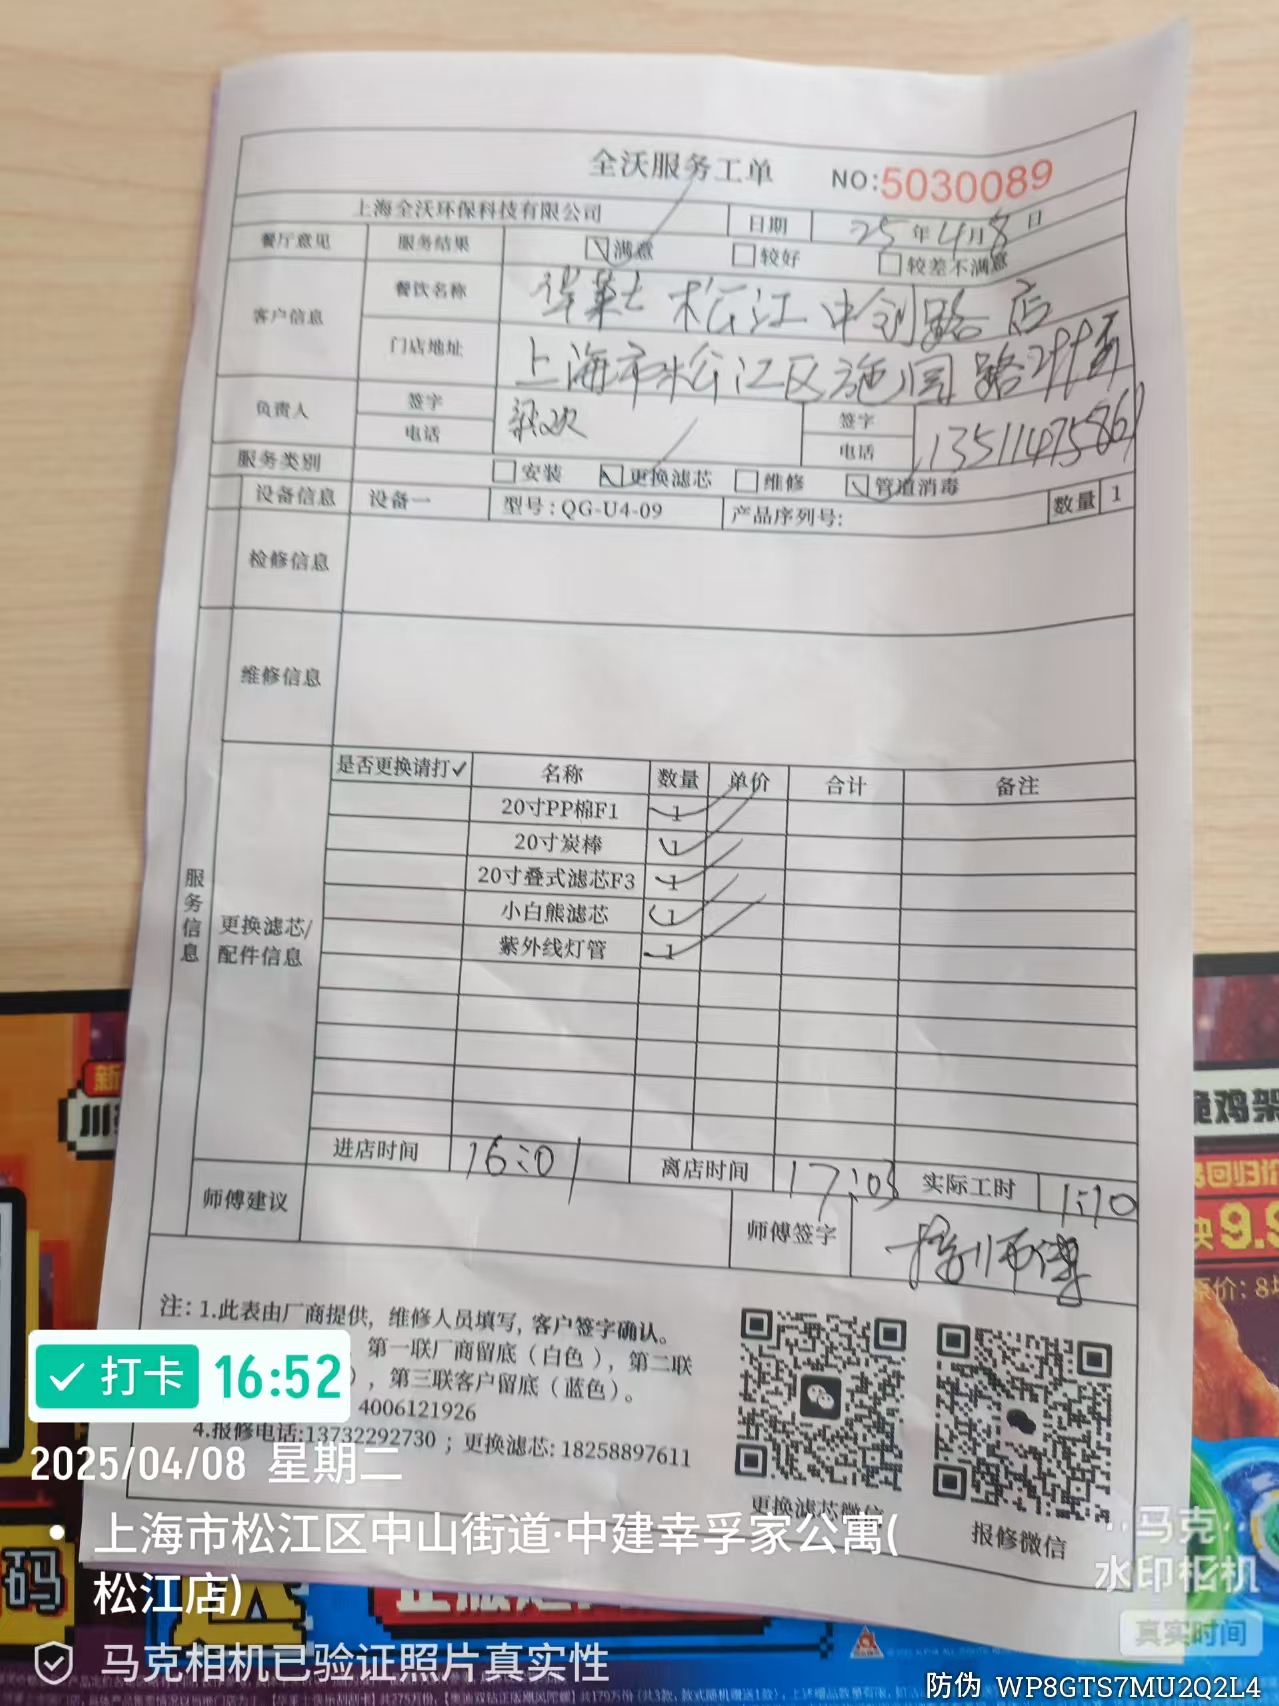 全沃服务工单 NO:5030089
上海全沃环保科技有限公司 日期 25年4月8日
餐厅意见 服务结果 满意 较好 较差不满意
客户信息 餐饮名称 华莱士松江中创路店
门店地址 上海市松江区施园路299弄
负责人 签字 梁欢 签字
电话 电话 13511475861
服务类别 安装 更换滤芯 维修 管道消毒
设备信息 设备一 型号:QG-U4-09 产品序列号: 数量 1
检修信息
维修信息
服务信息
更换滤芯/
配件信息
是否更换请打✓ 名称 数量 单价 合计 备注
20寸PP棉F1 1
20寸炭棒 1
20寸叠式滤芯F3 1
小白熊滤芯 1
紫外线灯管 1
进店时间 16:01 离店时间 17:03 实际工时 1:10
师傅建议 师傅签字
注: 1.此表由厂商提供, 维修人员填写, 客户签字确认。
第一联厂商留底(白色), 第二联
), 第三联客户留底(蓝色)。
4006121926
4.报修电话:13732292730; 更换滤芯: 18258897611
更换滤芯微信
报修微信
打卡 16:52
2025/04/08 星期二
上海市松江区中山街道·中建幸孚家公寓(
松江店)
马克相机已验证照片真实性
马克
水印相机
真实时间
防伪 WP8GTS7MU2Q2L4
码